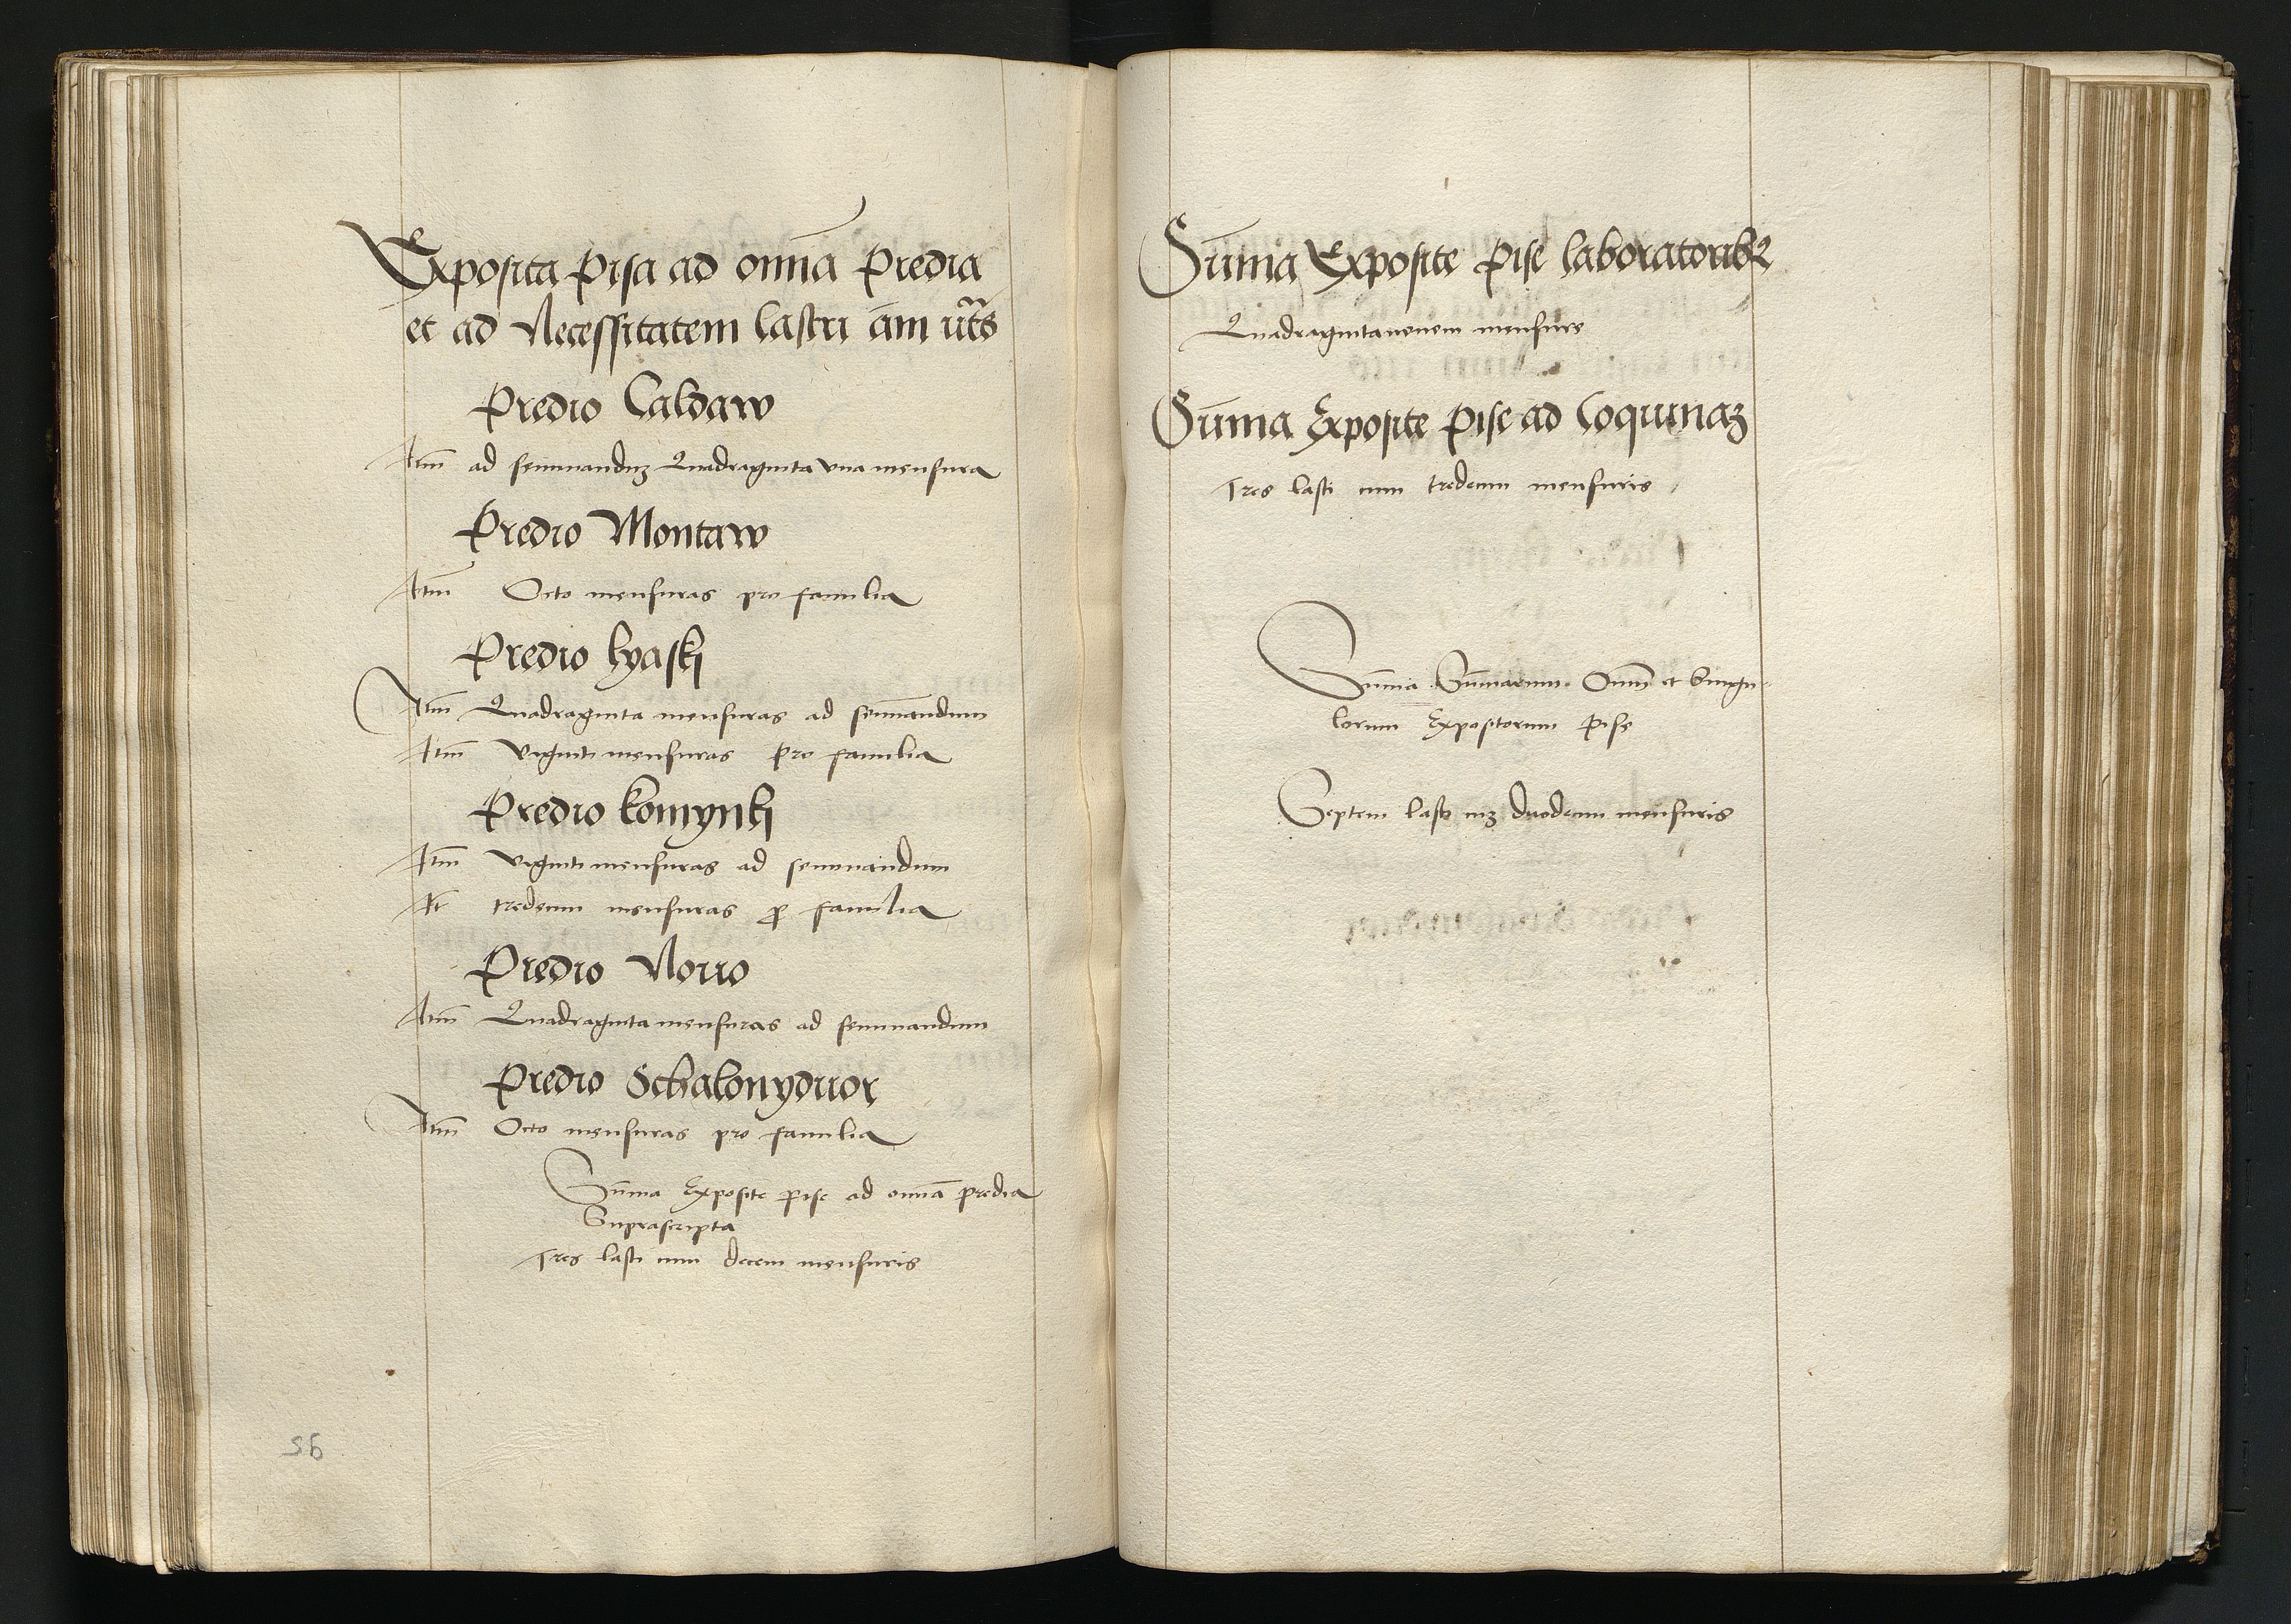 Exposita pisa ad om̄ia predia
et ad Necessitatem Castri am̄ ut̄s
Predio Caldaw
Itm̄ ad seminanduꝫ Quadraginta vna mensura
Predio Montaw
Itm̄ Octo mensuras pro familia
Predio lyaski
Itm̄ Quadraginta mensuras ad seminandum
Itm̄ viginti mensuras pro familia
Predio komynki
Itm̄ viginti mensuras ad seminandum
It tredecim mensuras ꝓ familia
Predio Novo
Itm̄ Quadraginta mensuras ad seminandum
Predio Schalonydwor
Itm̄ Octo mensuras pro familia
Sum̄a Exposite pise ad om̄ia predia
Suprascripta
Tres lasti cum decem mensuris
95
Sum̄a Exposite pise laboratoribꝫ
Quadragintanovem mensure
Sum̄a Exposite pise ad Coquinaꝫ
Tres lasti cum tredecim mensuris
Sum̄a Sum̄arum Om̄i et singu-
lorum Expositorum pise
Septem lasti cuꝫ duodecim mensuris